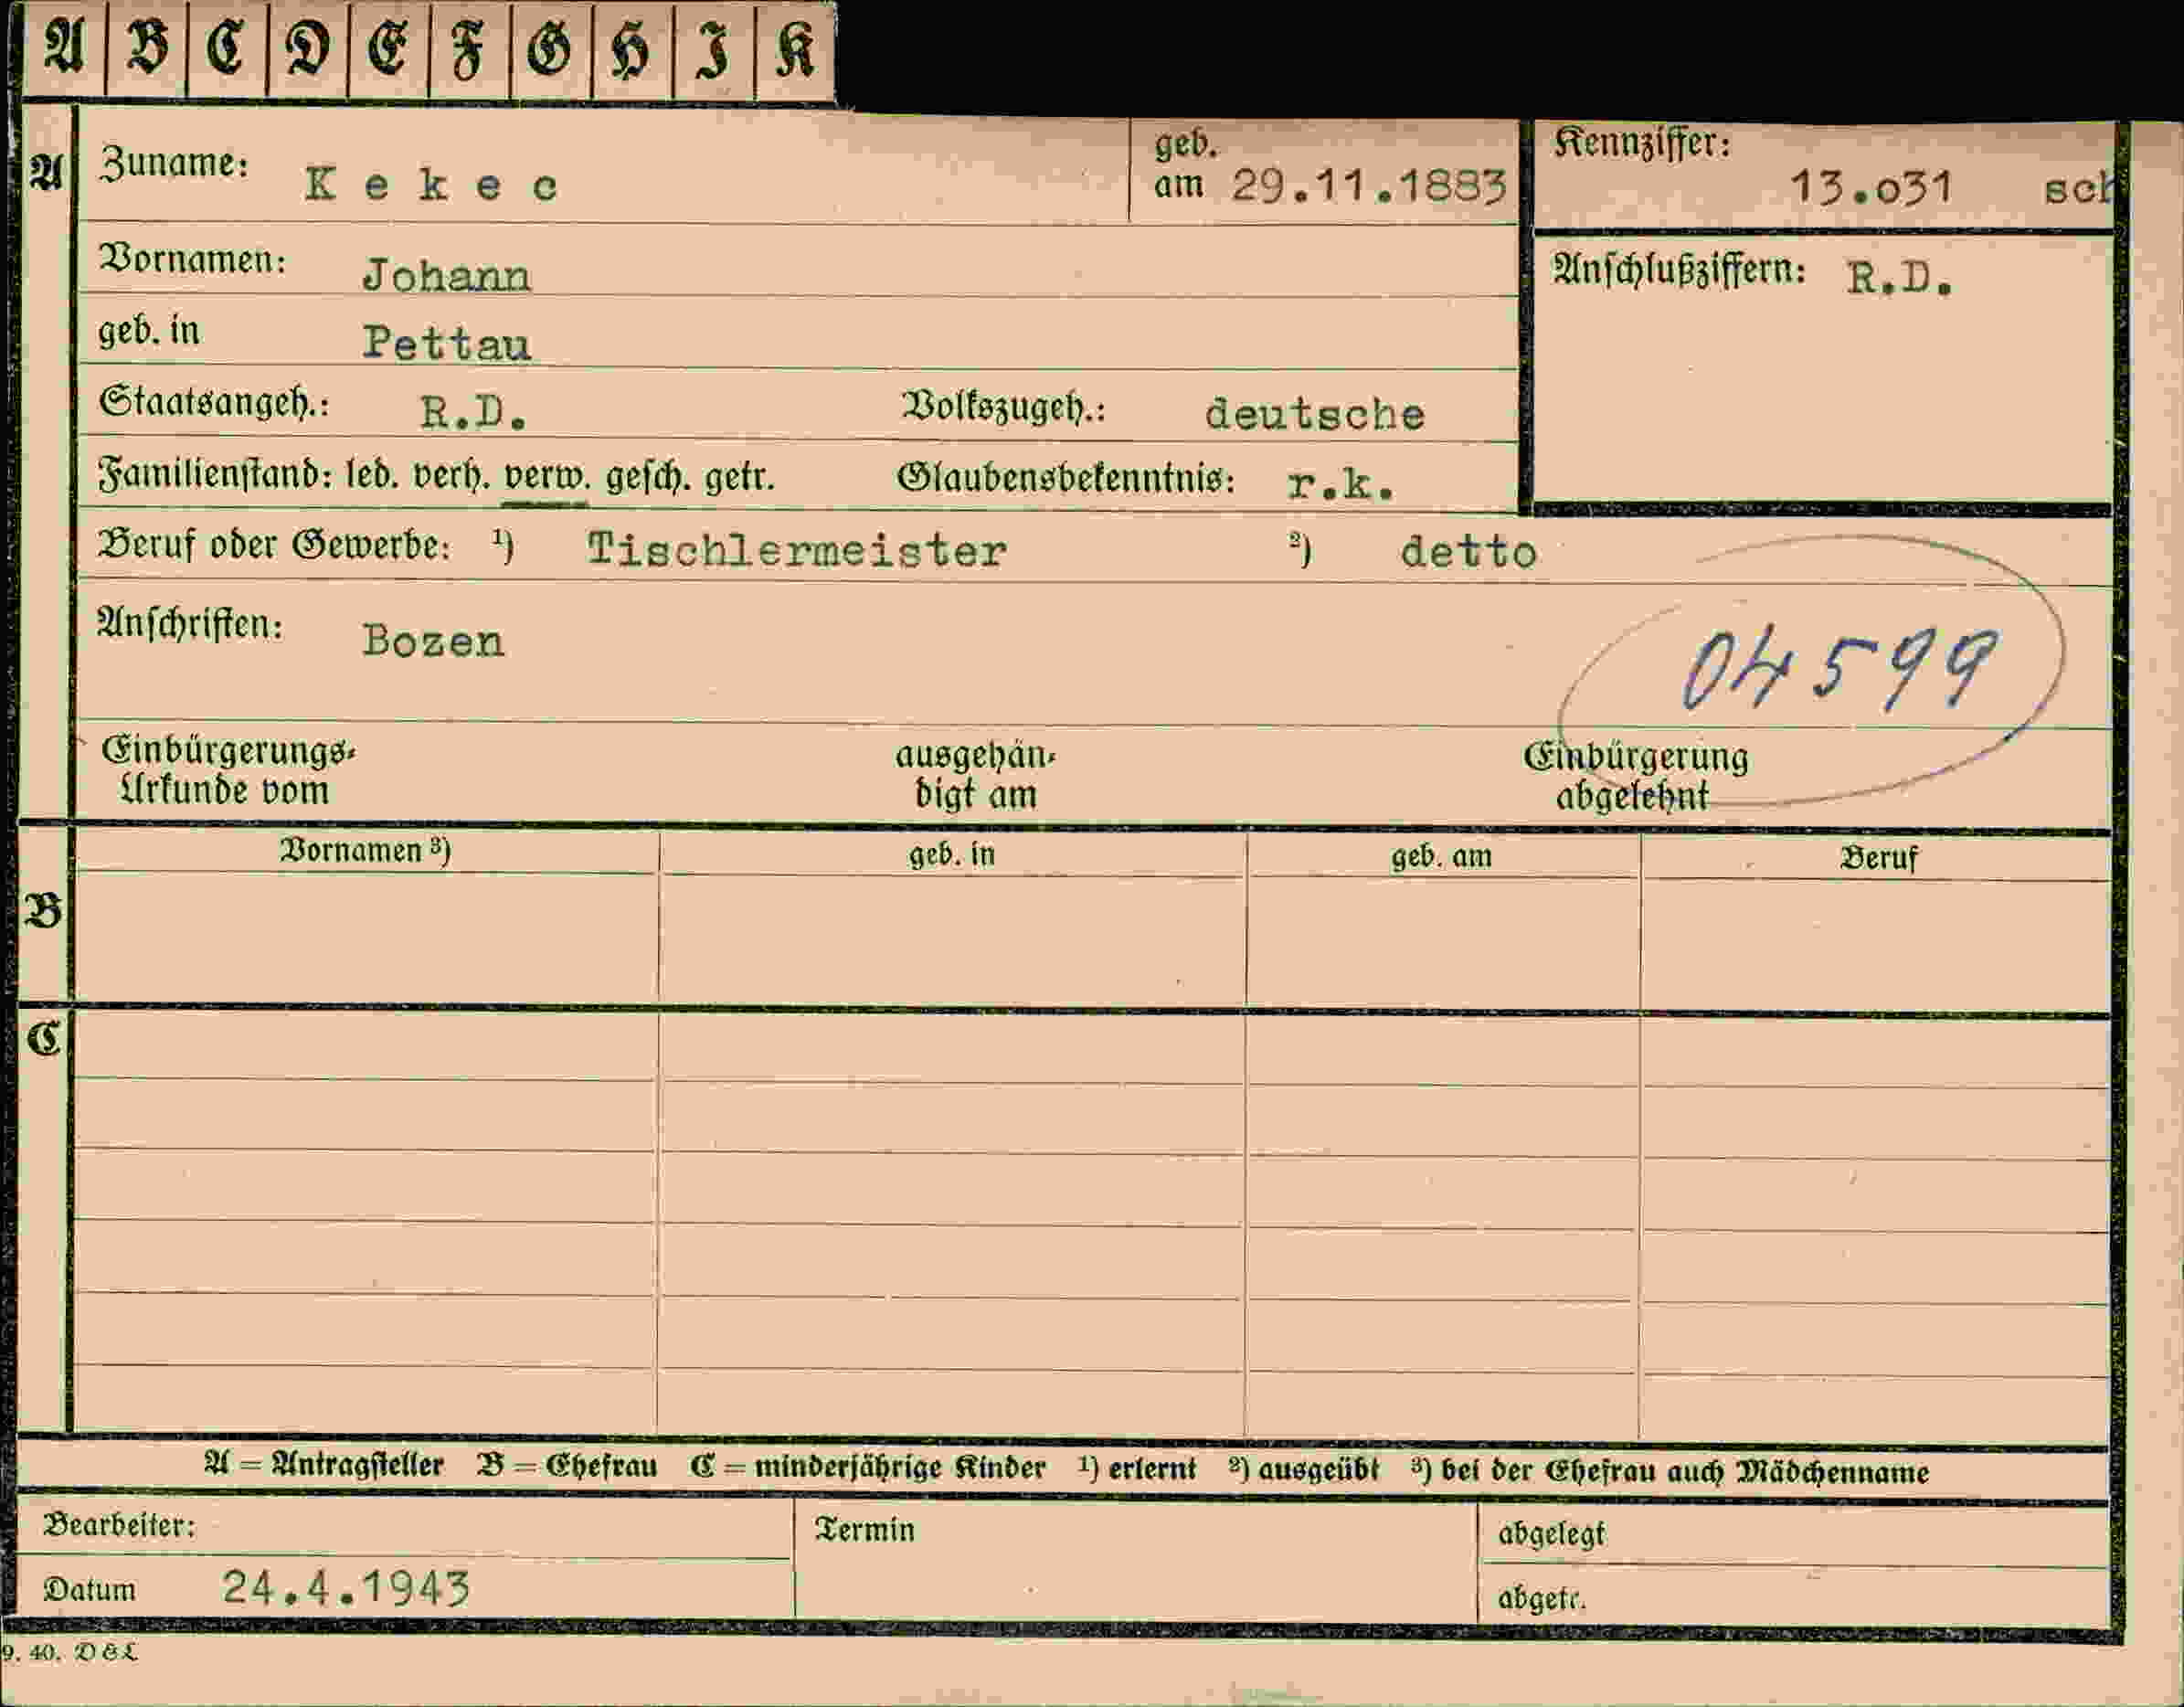 A B C D E F G H I K
A Zuname: Kekec geb. am 29.11.1883 Kennziffer: 13.031 sch
Vornamen: Johann Anschlußziffern: R.D.
geb. in Pettau
Staatsangeh.: R.D. Volkszugeh.: deutsche
Familienstand: led. verh. verw. gesch. getr. Glaubensbekenntnis: r.k.
Beruf oder Gewerbe: ¹) Tischlermeister ²) detto
Anschriften: Bozen
04599
Einbürgerungs-
Urkunde vom
ausgehän-
digt am
Einbürgerung
abgelehnt
Vornamen ³) geb. in geb. am Beruf
B
C
A = Antragsteller B = Ehefrau C = minderjährige Kinder ¹) erlernt ²) ausgeübt ³) bei der Ehefrau auch Mädchenname
Bearbeiter: Termin abgelegt
Datum 24.4.1943 abgetr.
9. 40. D & L